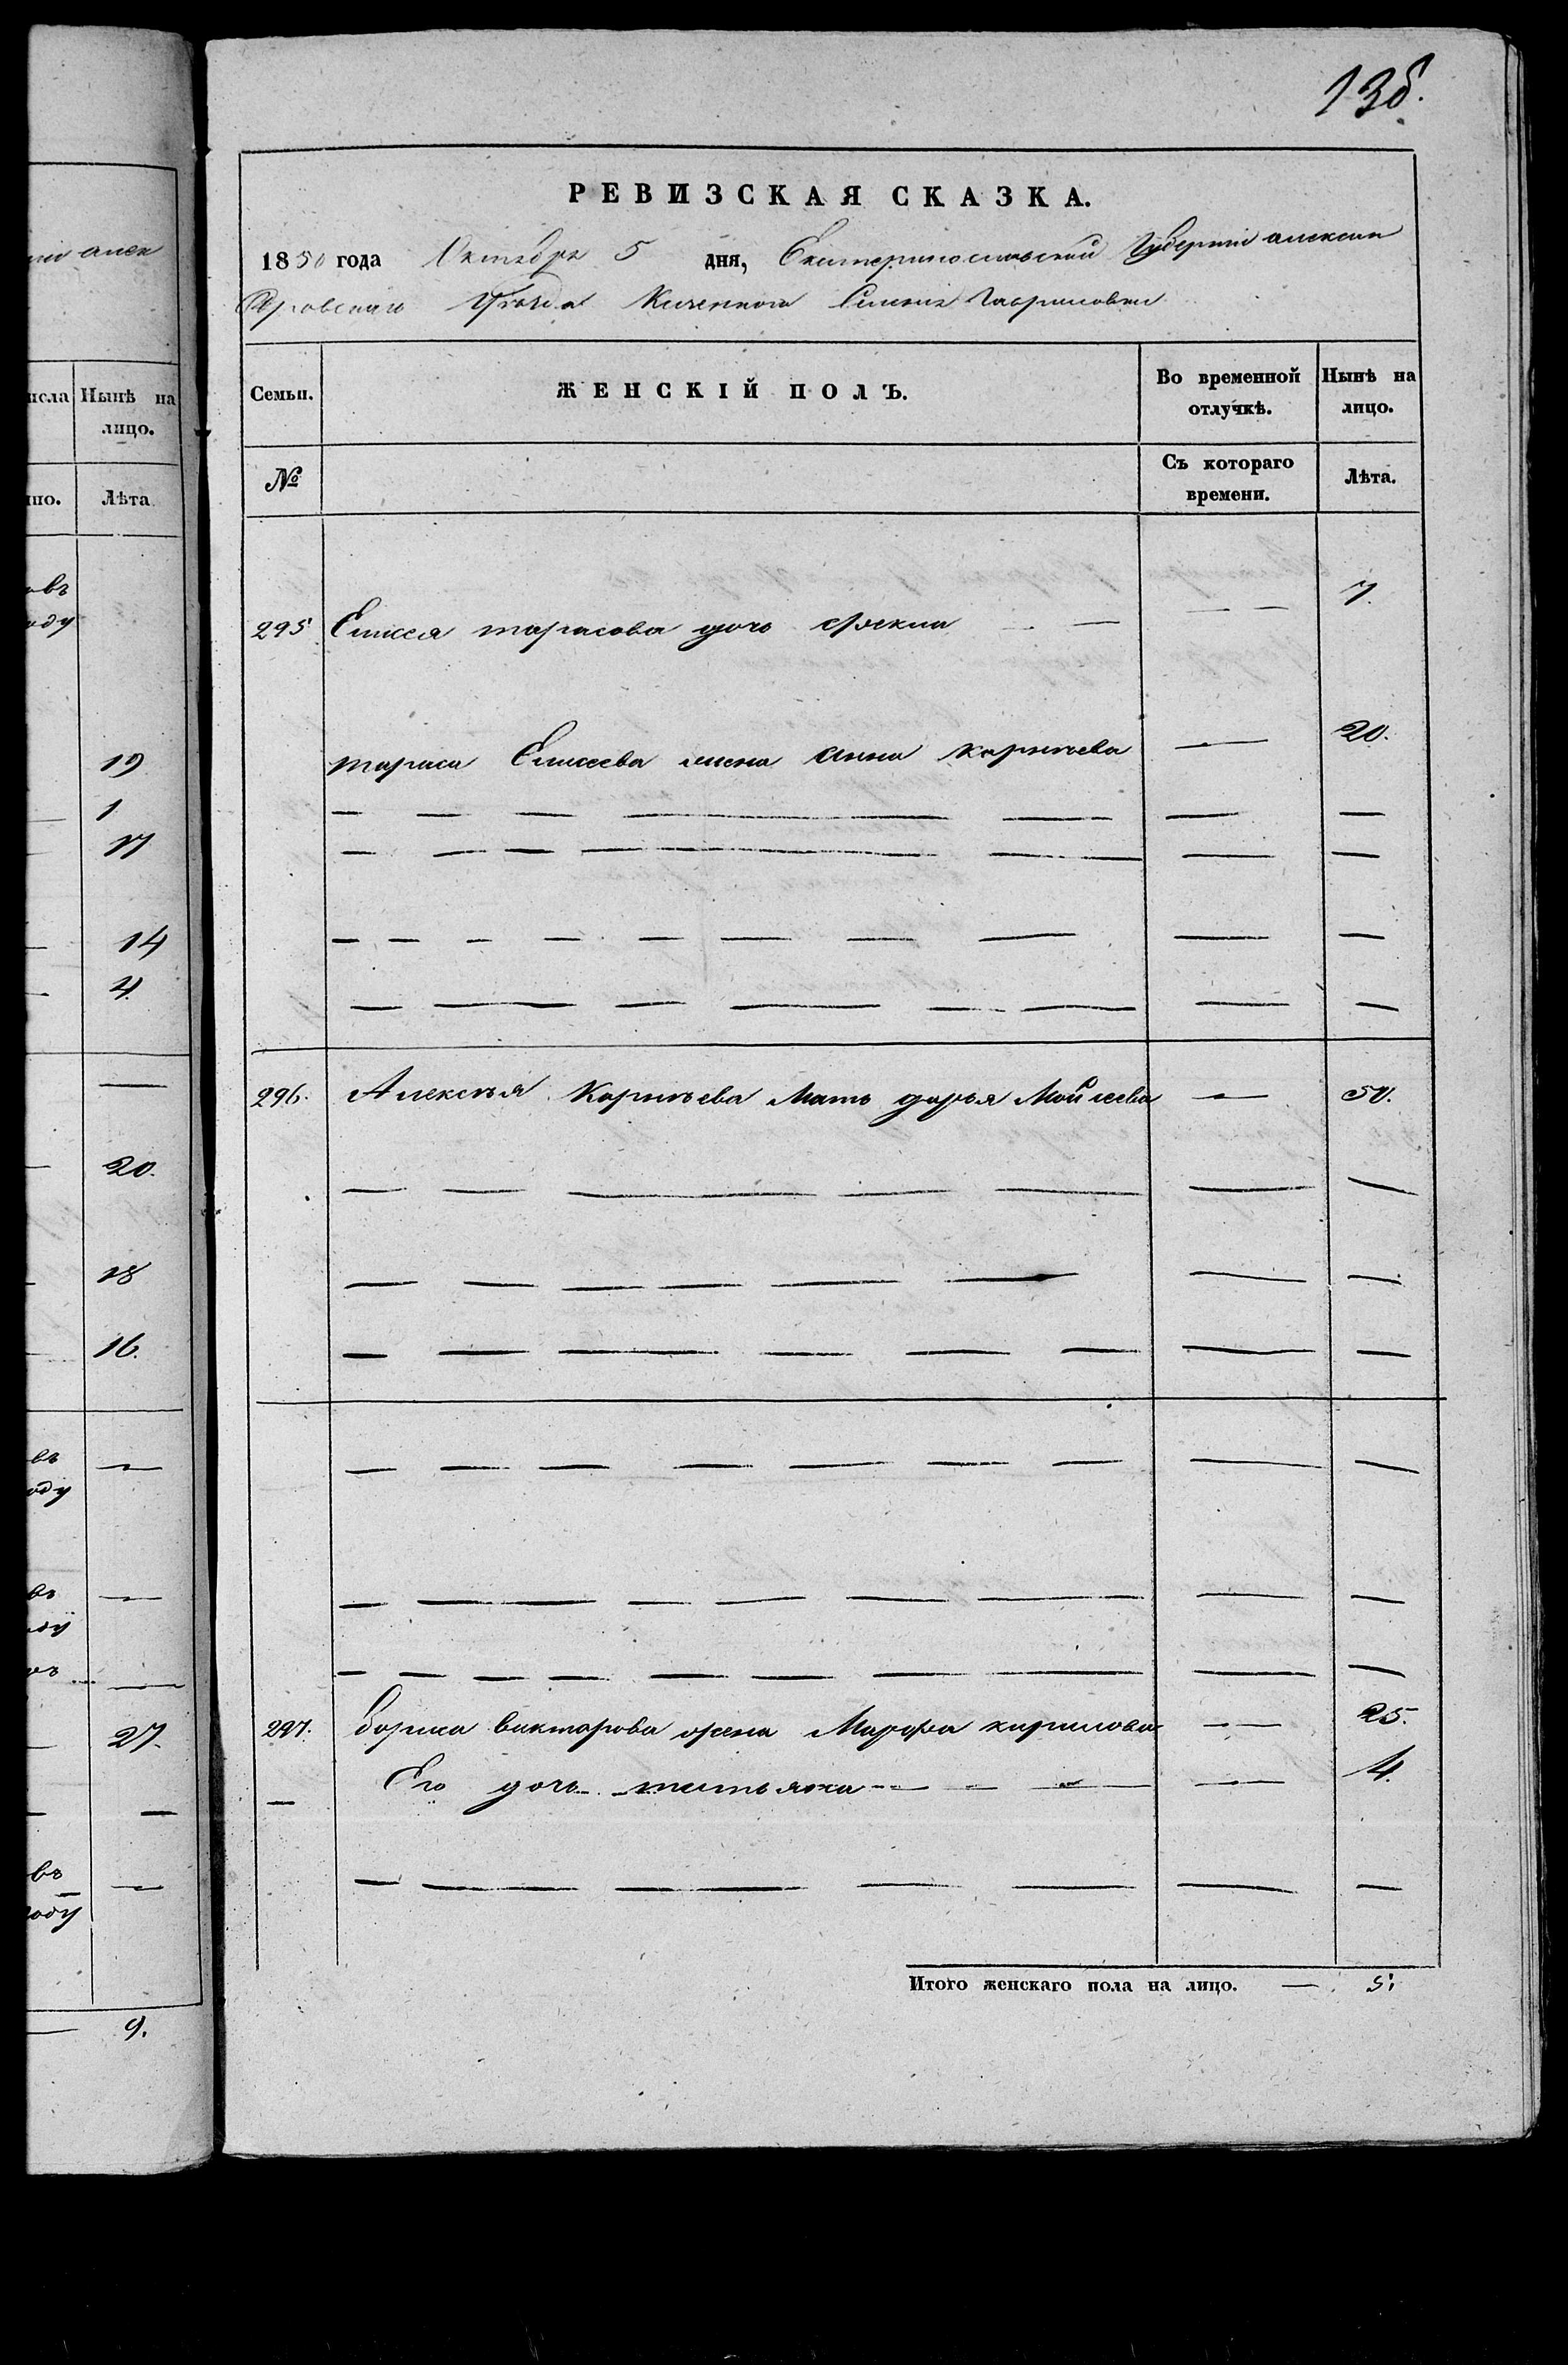 138.
РЕВИЗСКАЯ СКАЗКА.
1850 года Октября 5 дня, Екатеринославской Губерніи алексан
дровскаго Уѣзда Казенного Селенія Гавриловки
Семьи.
ЖЕНСКІЙ ПОЛЪ.
Во временной отлучкѣ.
Нынѣ на лицо.
№
Съ котораго времени.
Лѣта.
295 Елисея тарасова дочь фекла — — 7.
тараса Елисеева жена Анна Карнѣева — 20.
296. Алексѣя Карнѣева Мать дарья Мойсеева — 50.
297. бориса викторова жена Марфа кирилова — 25.
Его дочь татьяна — — 4.
Итого женскаго пола на лицо. — 5.
алек
исла
Нынѣ на лицо.
но.
Лѣта
овъ
оду
19
1
17
14
4.
20.
18
16.
въ
оду
въ
27.
въ
оду
9.